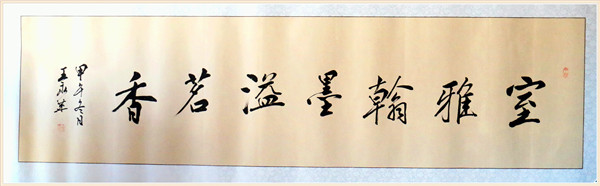 室雅翰墨溢茗香
甲午冬月
王永